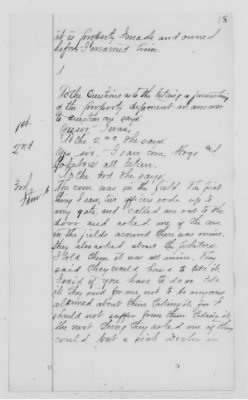 18
it is property I made and owned
before I married him.
To the Questions as to the taking or furnishing
of the property deponent in answer
to question one says:
1st.
Yes sir. I was.
To the 2nd she says:
2nd
Yes sir. I saw corn Hogs and
Potatoes all taken.
To the 3rd she says:
3rd
Item
The corn was in the field. The first
thing I saw, two officers rode up to
my gate, and called me out to the
door and asked me if the corn
in the fields around there was mine.
they also asked about the potatoes.
I told them it was all mine. They
said they would have to take it.
I said if you have to do so take
it. They said for me not to be
alarmed about them taking it, for I
should not suffer from them taking it.
the next thing they asked me if they
could put a sick soldier in